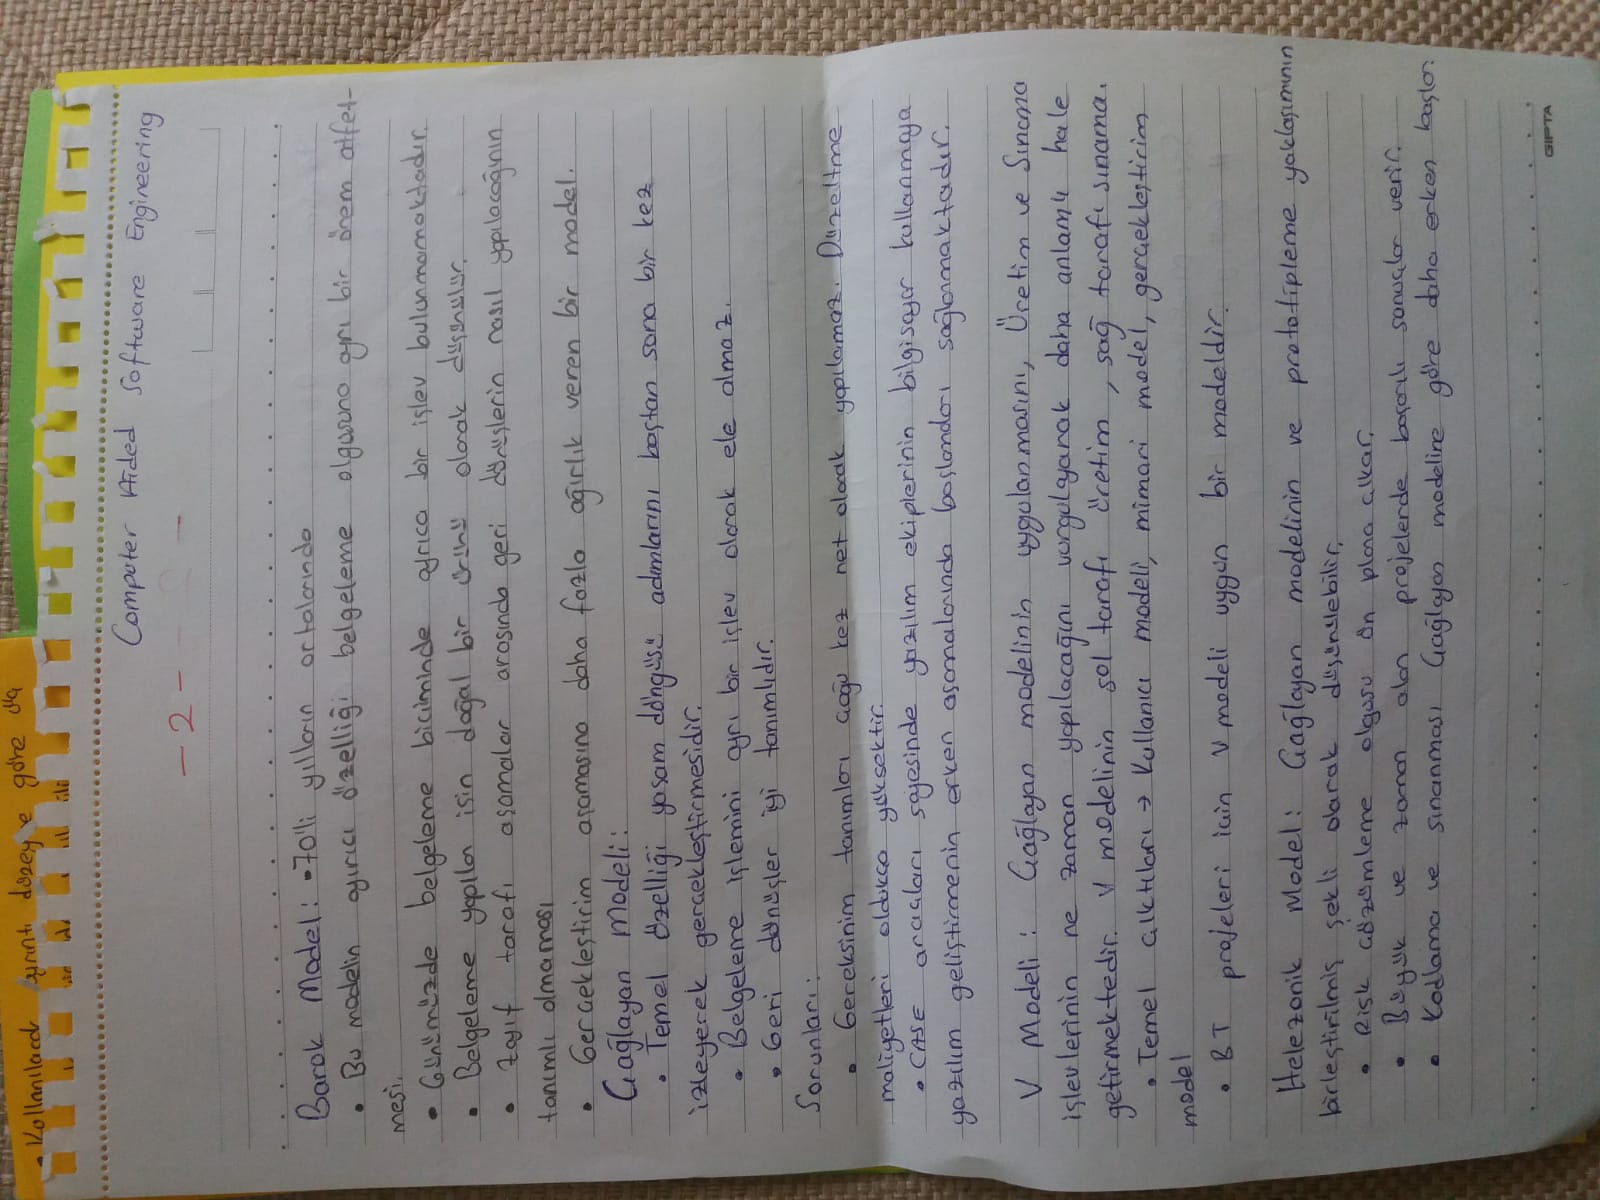 • Kullanılacak ayrıntı düzeyine göre da
Computer Aided Software Engineering
- 2 -
Barok Model: • 70'li yılların ortalarında
• Bu modelin ayırıcı özelliği belgeleme olgusuna ayrı bir önem atfet-
mesi.
• Günümüzde belgeleme biçiminde ayrıca bir işlev bulunmamaktadır.
• Belgeleme yapılan işin doğal bir ürünü olarak düşünülür.
• Zayıf tarafı aşamalar arasında geri dönüşlerin nasıl yapılacağının
tanımlı olmaması
• Gerçekleştirim aşamasına daha fazla ağırlık veren bir model.
Çağlayan Modeli:
• Temel özelliği yaşam döngüsü adımlarını baştan sona bir kez
izleyerek gerçekleştirmesidir.
• Belgeleme işlemini ayrı bir işlev olarak ele almaz.
• Geri dönüşler iyi tanımlıdır.
Sorunları:
• Gereksinim tanımları çoğu kez net olarak yapılamaz. Düzeltme
maliyetleri oldukça yüksektir.
• CASE araçları sayesinde yazılım ekiplerinin bilgisayar kullanmaya
yazılım geliştirmenin erken aşamalarında başlandarı sağlanmaktadır.
V Modeli: Çağlayan modelinin uygulanmasını, Üretim ve Sınama
işlevlerinin ne zaman yapılacağını vurgulayarak daha anlamlı hale
getirmektedir. V modelinin sol tarafı üretim, sağ tarafı sınama.
• Temel çıktıları → Kullanıcı modeli, mimari model, gerçekleştirim
model
• BT projeleri için V modeli uygun bir modeldir.
Helezonik Model: Çağlayan modelinin ve prototipleme yaklaşımının
birleştirilmiş şekli olarak düşünülebilir.
• Risk çözümleme olgusu ön plana çıkar.
• Büyük ve zaman alan projelerde başarılı sonuçlar verir.
• Kodlama ve sınanması Çağlayan modeline göre daha erken başlar.
GIPTA